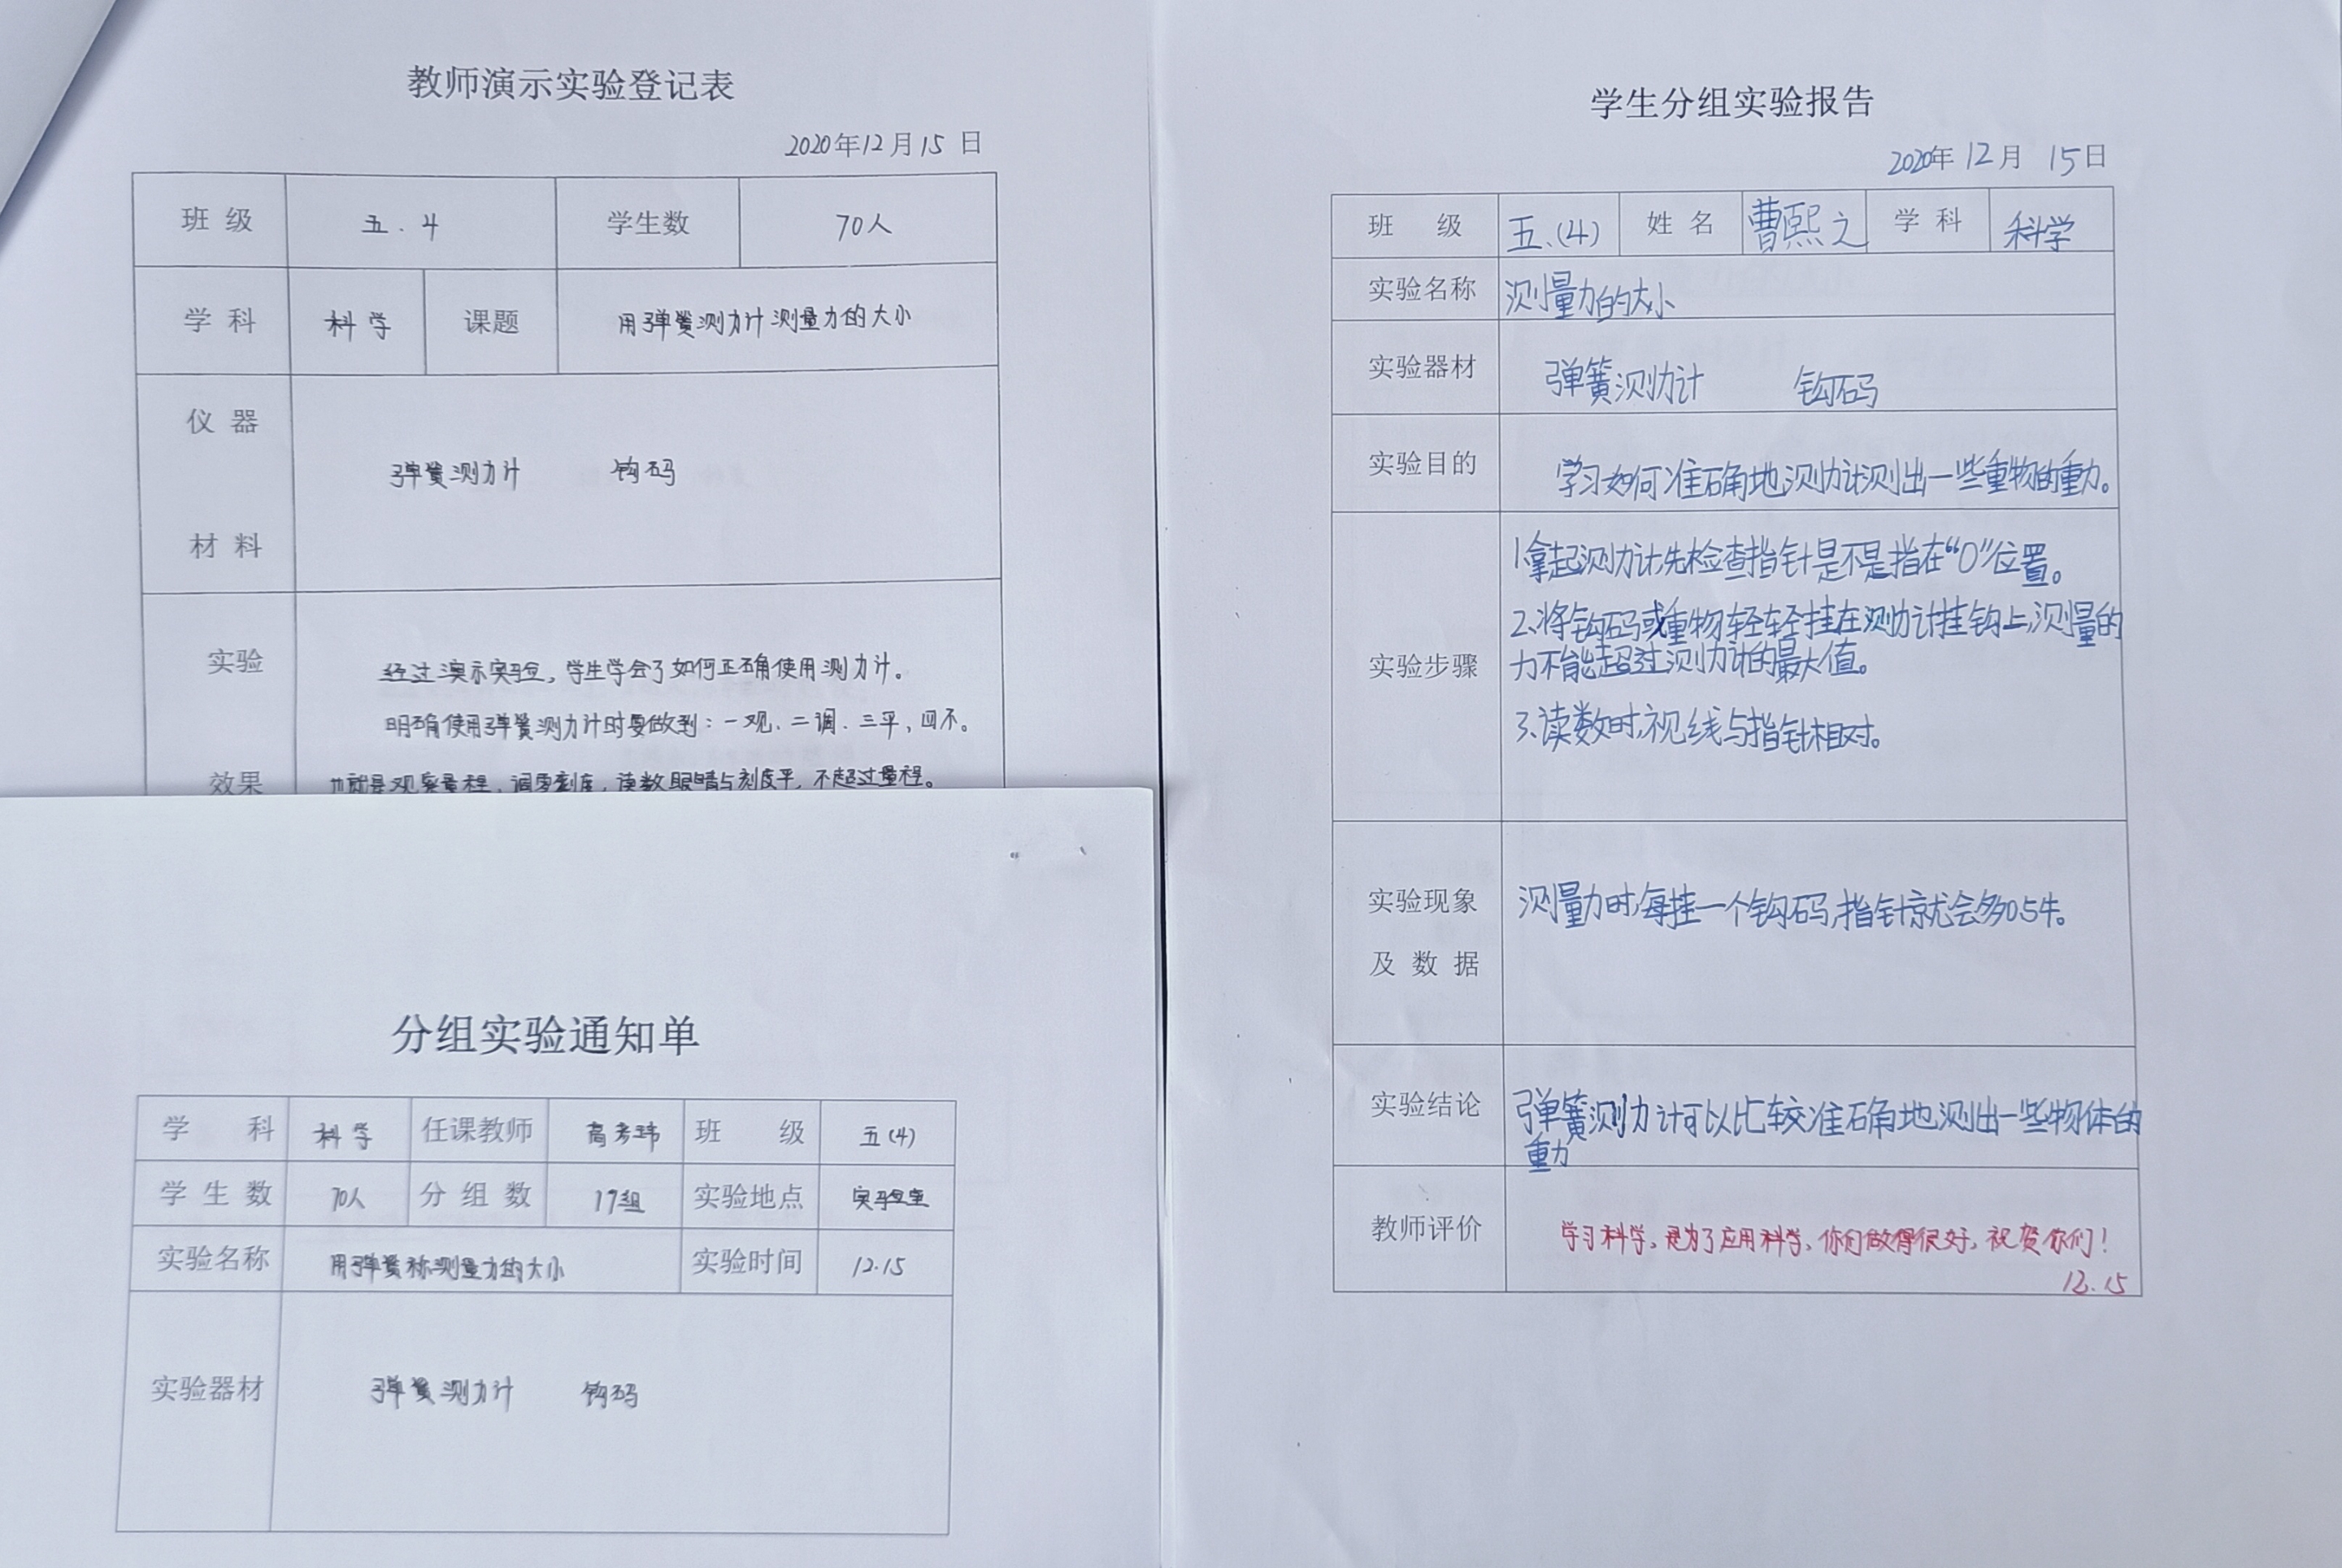 教师演示实验登记表
2020年12月15日
班级 五.4 学生数 70人
学科 科学 课题 用弹簧测力计测量力的大小
仪器材料 弹簧测力计 钩码
实验效果 经过演示实验，学生学会了如何正确使用测力计。
明确使用弹簧测力计时要做到：一观、二调、三平、四不。
也就是观察量程，调零刻度，读数眼睛与刻度平，不超过量程。
分组实验通知单
学科 科学 任课教师 高考玮 班级 五(4)
学生数 70人 分组数 17组 实验地点 实验室
实验名称 用弹簧称测量力的大小 实验时间 12.15
实验器材 弹簧测力计 钩码
学生分组实验报告
2020年12月15日
班级 五.(4) 姓名 曹熙之 学科 科学
实验名称 测量力的大小
实验器材 弹簧测力计 钩码
实验目的 学习如何准确地测力计测出一些重物的重力。
实验步骤 1.拿起测力计先检查指针是不是指在“0”位置。
2.将钩码或重物轻轻挂在测力计挂钩上,测量的
力不能超过测力计的最大值。
3.读数时,视线与指针相对。
实验现象及数据 测量力时,每挂一个钩码,指针就会多0.5牛。
实验结论 弹簧测力计可以比较准确地测出一些物体的
重力
教师评价 学习科学，是为了应用科学，你们做得很好，祝贺你们！
12.15